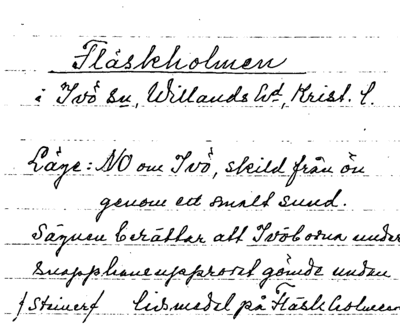 Fläskholmen
i Ivö sn, Willands hd, Krist. l.
Läge: NO om Ivö, skild från ön
genom ett smalt sund.
Sägnen berättar att Ivöborna under
snapphaneupproret gömde undan
livsmedel på Fläskholmen